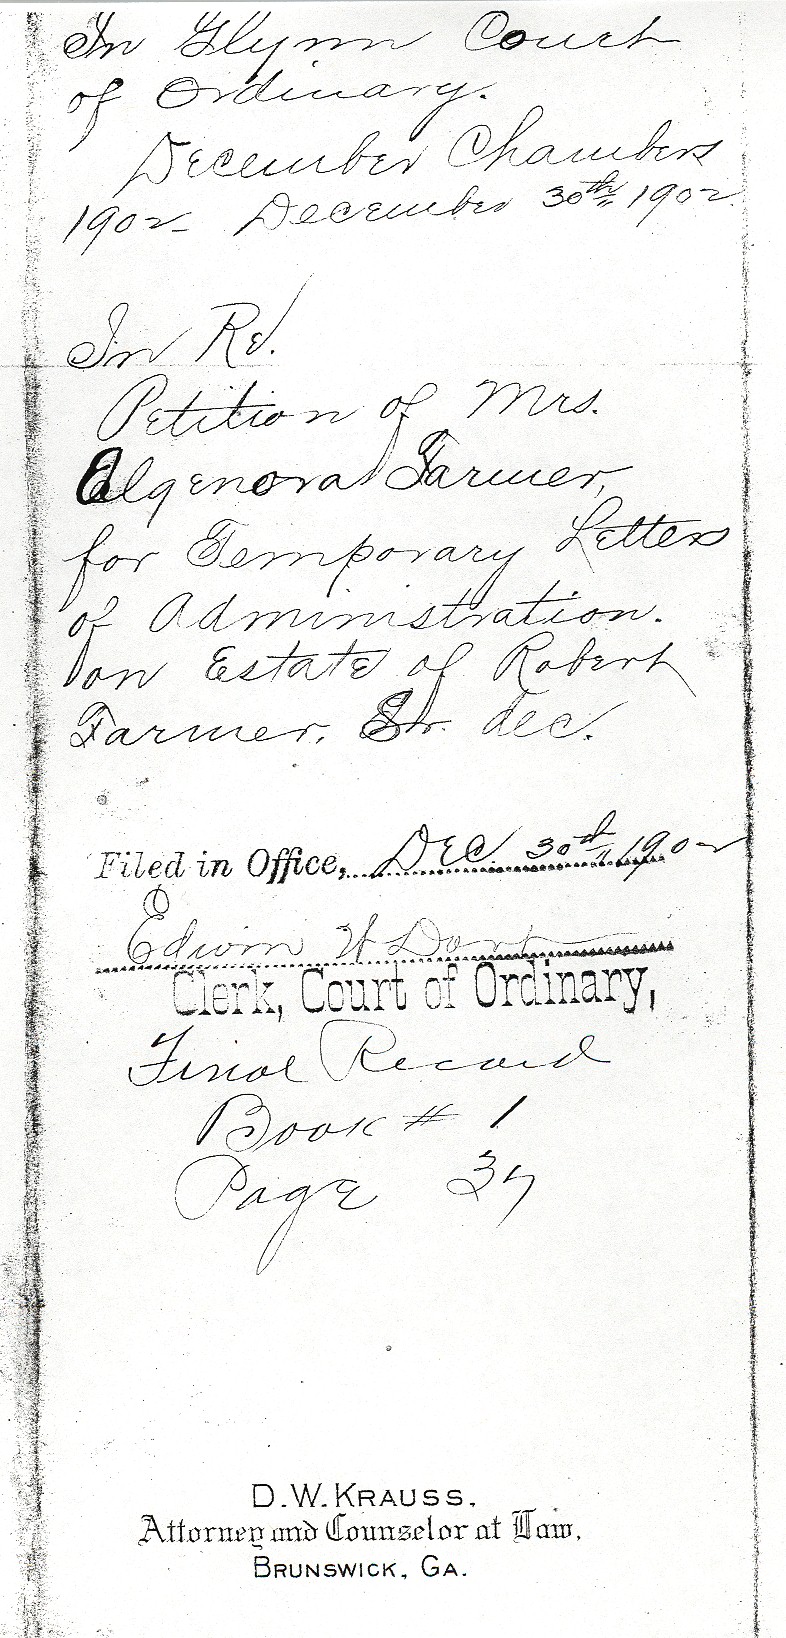 In Glynn Court
of Ordinary.
December Chambers
1902 December 30th 1902.
In Re.
Petition of Mrs.
Algenora Farmer,
for Temporary Letters
of Administration.
on Estate of Robert
Farmer, Sr. dec.
Filed in Office, Dec 30th 1902
Edwin W Dart
Clerk, Court of Ordinary,
Final Record
Book # 1
Page 37
D. W. KRAUSS,
Attorney and Counselor at Law,
BRUNSWICK, GA.